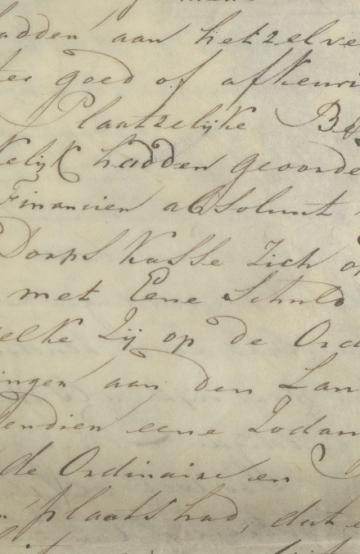 adden aan hetzelve
ter goed of afkeur
Plaatzelijke Be
kelijk hadden geoorde
Financien absolunt
Dorps Kasse zich o
met Eene Schuld
elke Zij op de Ord
ingen aan den Lan
endien eene Zodan
de Ordinaire en
plaats had, dat